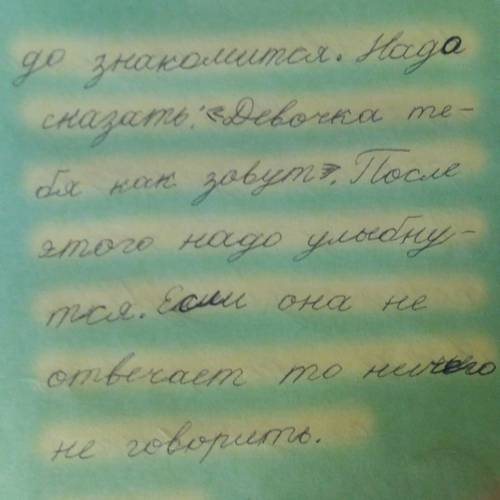 до знакомится. Надо
сказать: «Девочка те-
бя как зовут». После
этого надо улыбну-
тся. Если она не
отвечает то ничего
не говорить.